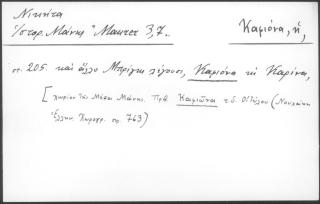 Νικήτα
Ἱστορ. Μάνης "Μακτετ 3,7..
Καμιόνα, ἡ,
σ. 205. καὶ ἄλλο Μπρίγκι λέγουσι, Καμιόνα κὶ Καρίνα,
[χωρίον τῆς Μέσα Μάνης. Πρβ. Καμιῶνα τ.δ. Οἰτύλου (Νουχάκη
Ἑλλην. Χωρογρ. σ. 763)